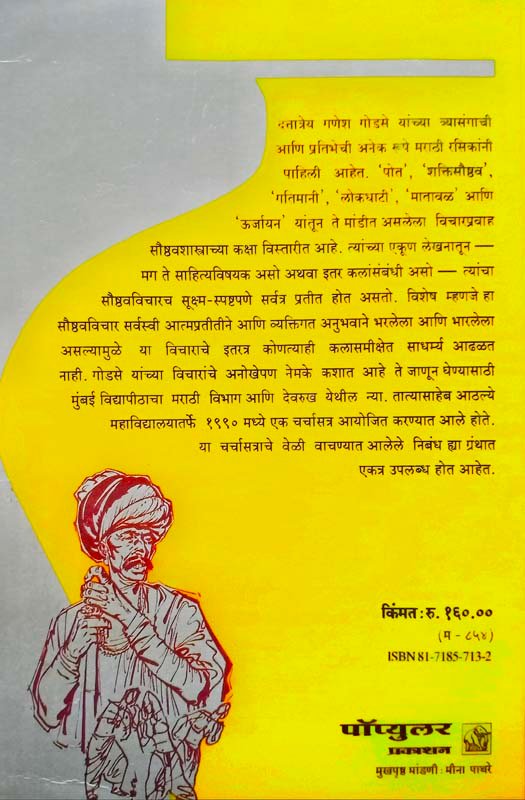 दत्तात्रेय गणेश गोडसे यांच्या व्यासंगाची
आणि प्रतिभेची अनेक रूपे मराठी रसिकांनी
पाहिली आहेत. 'पोत', 'शक्तिसौष्ठव',
'गतिमानी', 'लोकधाटी', 'मातावळ' आणि
'ऊर्जायन' यांतून ते मांडीत असलेला विचारप्रवाह
सौष्ठवशास्त्राच्या कक्षा विस्तारीत आहे. त्यांच्या एकूण लेखनातून —
मग ते साहित्यविषयक असो अथवा इतर कलांसंबंधी असो — त्यांचा
सौष्ठवविचारच सूक्ष्म-स्पष्टपणे सर्वत्र प्रतीत होत असतो. विशेष म्हणजे हा
सौष्ठवविचार सर्वस्वी आत्मप्रतीतीने आणि व्यक्तिगत अनुभवाने भरलेला आणि भारलेला
असल्यामुळे या विचाराचे इतरत्र कोणत्याही कलासमीक्षेत साधर्म्य आढळत
नाही. गोडसे यांच्या विचारांचे अनोखेपण नेमके कशात आहे ते जाणून घेण्यासाठी
मुंबई विद्यापीठाचा मराठी विभाग आणि देवरुख येथील न्या. तात्यासाहेब आठल्ये
महाविद्यालयातर्फे १९९० मध्ये एक चर्चासत्र आयोजित करण्यात आले होते.
या चर्चासत्राचे वेळी वाचण्यात आलेले निबंध ह्या ग्रंथात
एकत्र उपलब्ध होत आहेत.
किंमत : रु. १६०.००
(म - ८५४)
ISBN 81-7185-713-2
पॉप्युलर
प्रकाशन
मुखपृष्ठ मांडणी : मीना पाथरे